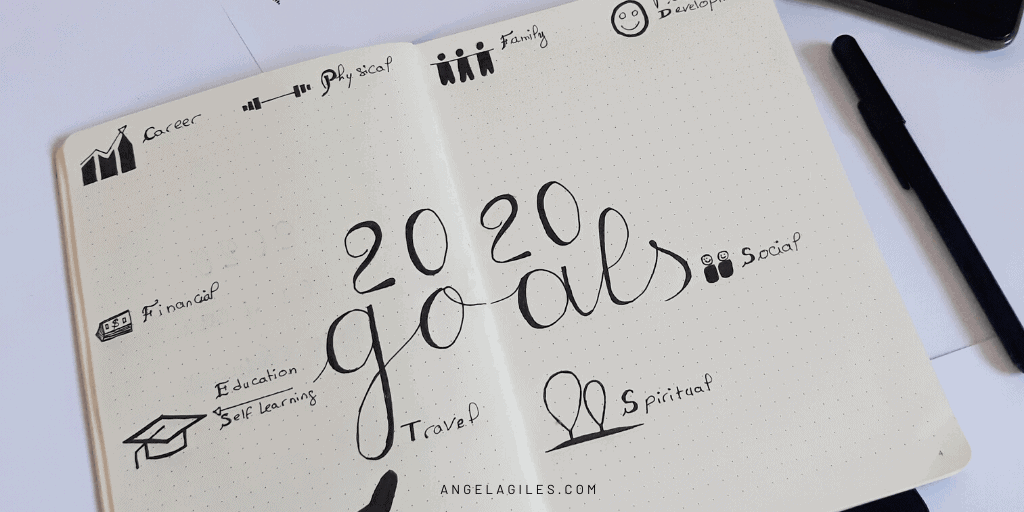 Development
Family
Physical
Career
2020
goals
Social
Financial
Education
Self Learning
Travel
Spiritual
4
ANGELAGILES.COM